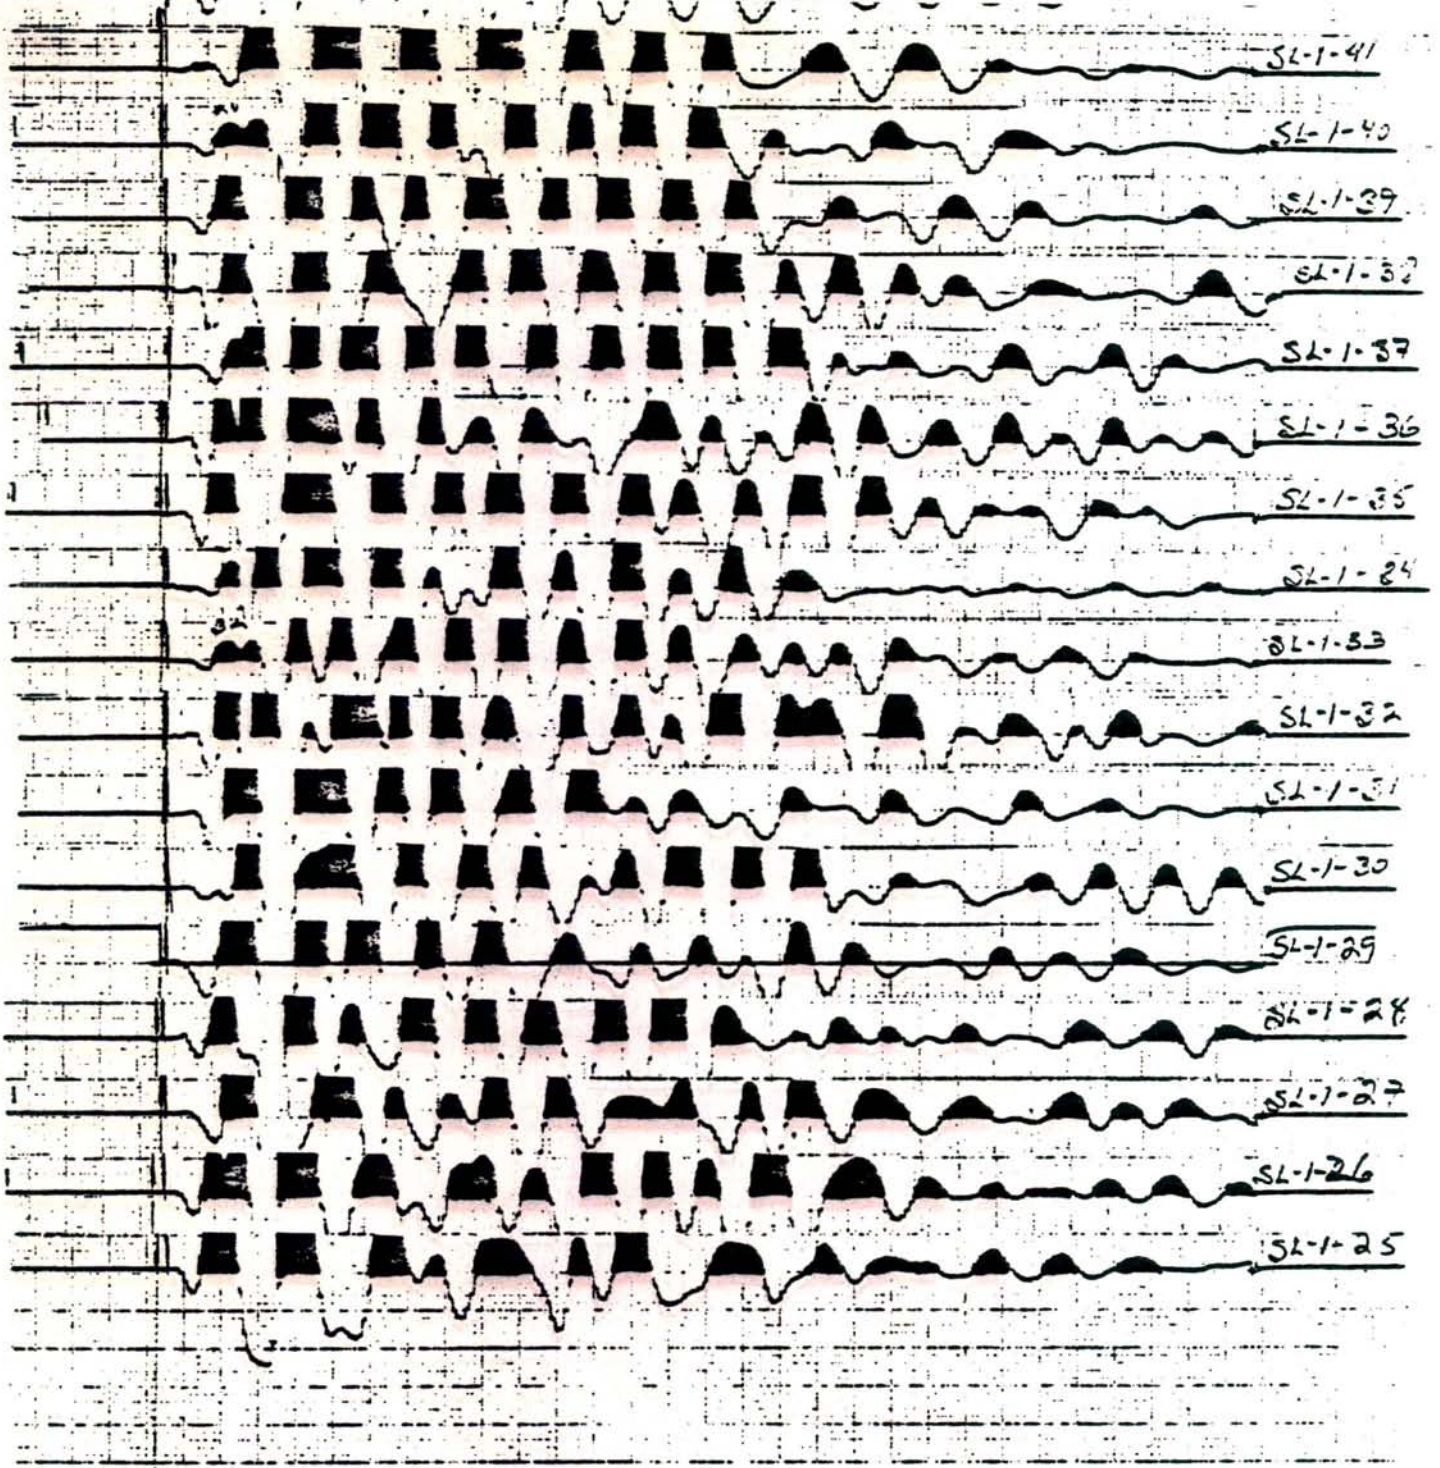 SL-1-41
SL-1-40
SL-1-39
SL-1-37
SL-1-36
SL-1-35
SL-1-34
SL-1-33
SL-1-32
SL-1-31
SL-1-30
SL-1-29
SL-1-28
SL-1-27
SL-1-26
SL-1-25